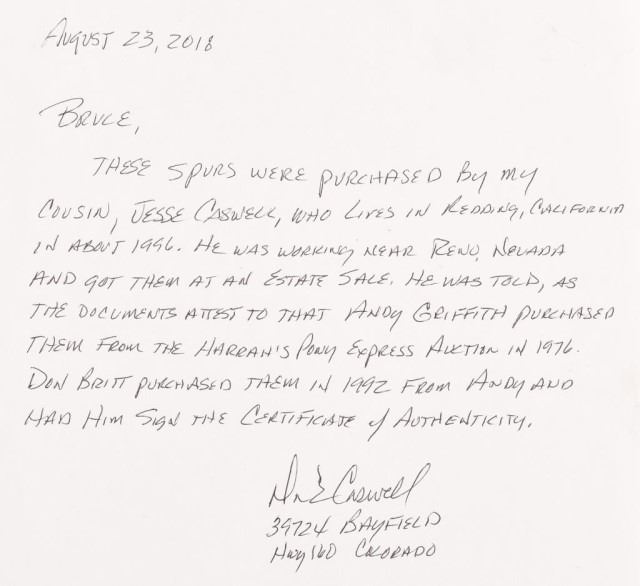 August 23, 2018
Bruce,
These spurs were purchased by my
cousin, Jesse Caswell, who lives in Redding, California
in about 1996. He was working near Reno, Nevada
and got them at an estate sale. He was told, as
the documents attest to that Andy Griffith purchased
them from the Harrah's Pony Express Auction in 1976.
Don Britt purchased them in 1992 from Andy and
had him sign the Certificate of Authenticity.
Caswell
39724 Bayfield
Hwy 160 Colorado